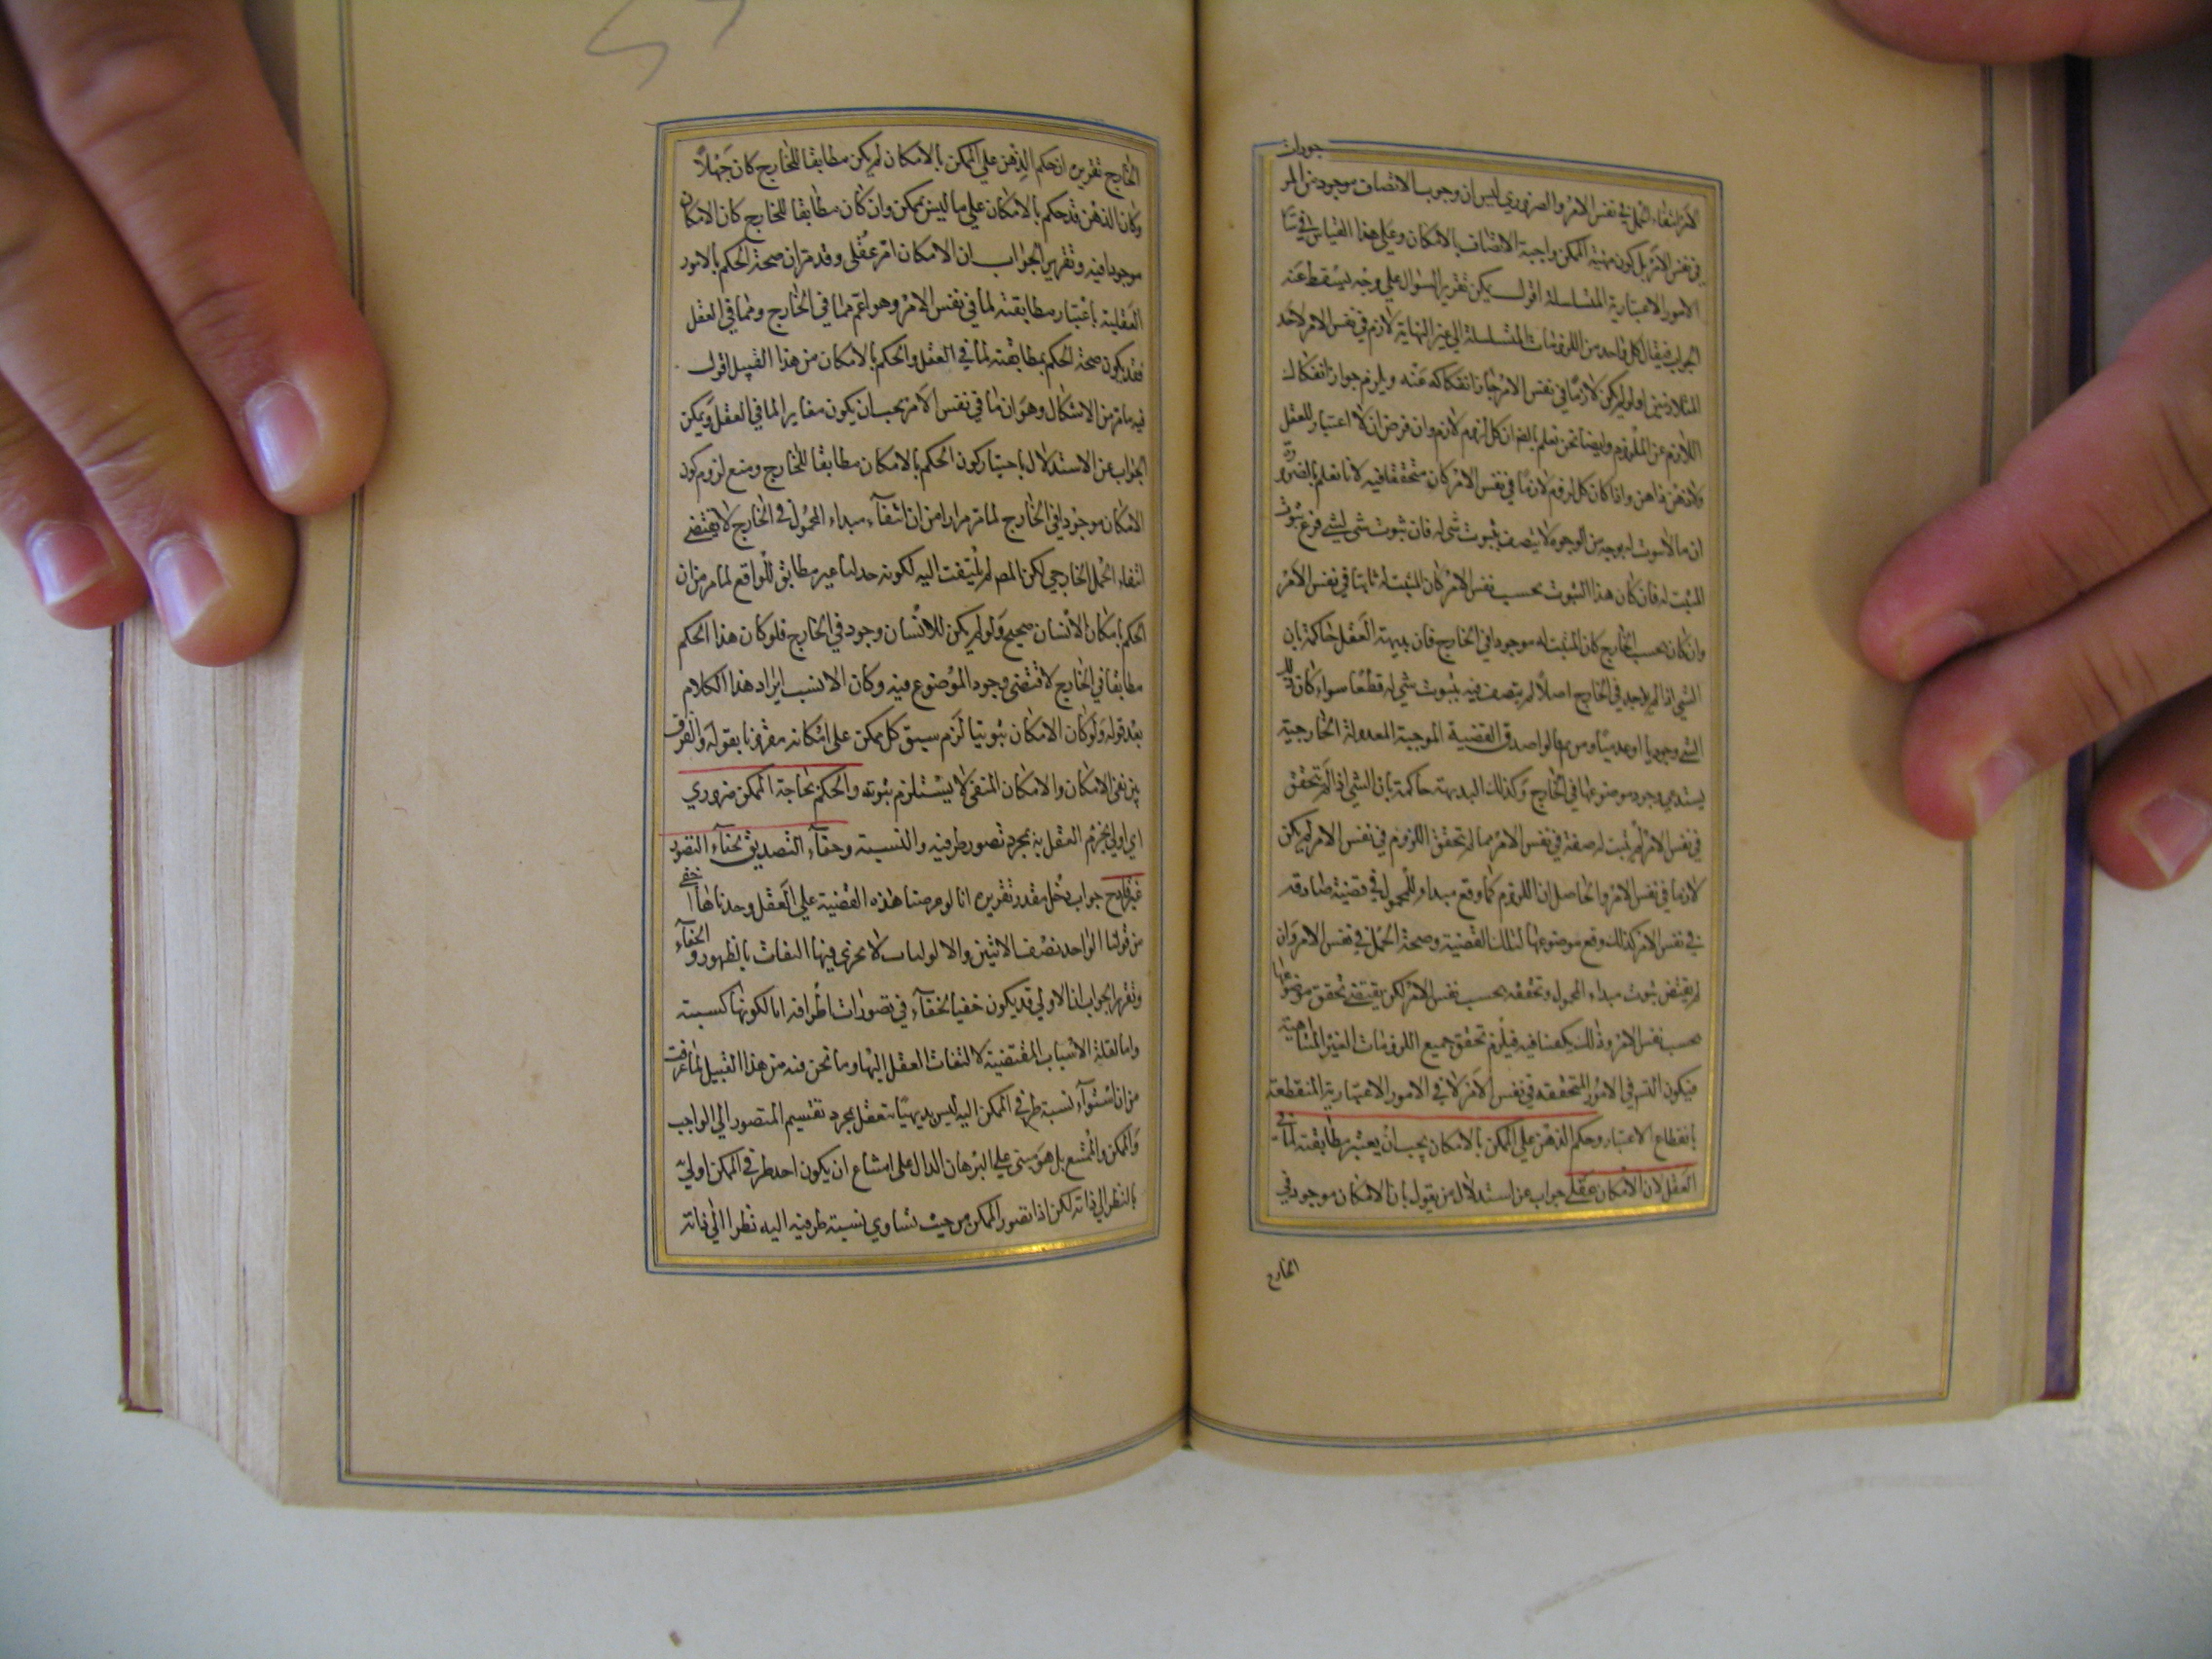 جودات
الامر انتفاء الحمل في نفس الامر والضروري ليس ان وجوب الاتصاف موجود من المو
في نفس الامر بل كون مهية الممكن واجبة الاتصاف بالامكان وعلى هذا القياس في سا
الامور الاعتبارية المتسلسلة اقول يمكن تقرير السؤال على وجه يسقط عنه
الجواب فيقال كل واحد من اللزومات المتسلسلة الى غير النهاية لازم في نفس الامر لاحد
المتلازمين اولو لم يكن لازما في نفس الامر جاز انفكاكه عنه ويلزم جواز انفكاك
اللازم عن الملزوم وايضا نحن نعلم بالضم ان كل لزوم لازم وان فرض ان لا اعتبار للعقل
ولا ذهن ذاهن واذا كان كل لزوم لازما في نفس الامر كان متحققا فيه لانا نعلم بالضرورة
ان ما لا ثبوت له بوجه من الوجوه لا يتصف بثبوت شي له فان ثبوت شي لشي فرع ثبوت
المثبت له فان كان هذا الثبوت بحسب نفس الامر كان المثبت له ثابتا في نفس الامر
وان كان بحسب الخارج كان المثبت له موجودا في الخارج فان بديهة العقل حاكمة بان
الشي اذا لم يوجد في الخارج اصلا لم يتصف فيه بثبوت شي له قطعا سواء كان ذلك
الشي وجوديا او عدميا ومن ثم قالوا صدق القضية الموجبة المعدولة الخارجية
يستدعي وجود موضوعها في الخارج وكذلك البديهة حاكمة بان الشي اذا لم يتحقق
في نفس الامر لم يثبت له صفة في نفس الامر فما لم يتحقق اللزوم في نفس الامر لم يكن
لازما في نفس الامر والحاصل ان اللزوم كما وقع مبداء للمحمول في قضية صادقه
في نفس الامر كذلك وقع موضوعا لتلك القضية وصحة الحمل في نفس الامر وان
لم يقتض ثبوت مبداء المحمول وتحققه بحسب نفس الامر لكن يقتضي تحقق موضوعها
بحسب نفس الامر وذلك يكفينا فيه فيلزم تحقق جميع اللزومات الغير المتناهية
فيكون التسه في الامور المتحققه في نفس الامر لا في الامور الاعتبارية المنقطعة
بانقطاع الاعتبار وحكم الذهن على الممكن بالامكان يجب ان يعتبر مطابقته لما في
العقل لان الامكان عقلي جواب عن استدلال من يقول بان الامكان موجود في
الخارج
الخارج تقريره ان حكم الذهن على الممكن بالامكان لم يكن مطابقا للخارج كان جهلا
وكان الذهن قد حكم بالامكان على ما ليس بممكن وان كان مطابقا للخارج كان الامكان
موجودا فيه وتقرير الجواب ان الامكان امر عقلى وقد مر ان صحة الحكم بالامور
العقلية باعتبار مطابقته لما في نفس الامر وهو اعم مما في الخارج ومما في العقل
فقد يكون صحة الحكم بمطابقته لما في العقل والحكم بالامكان من هذا القبيل اقول
فيه ما مر من الاشكال وهو ان ما في نفس الامر يجب ان يكون مغايرا لما في العقل ويمكن
الجواب عن الاستدلال باختيار كون الحكم بالامكان مطابقا للخارج ومنع لزوم كون
الامكان موجودا في الخارج لما مر مرارا من ان انتفاء مبداء المحمول في الخارج لا يقتضي
انتفاء الحمل الخارجي لكن المصه لم يلتفت اليه لكونه جدليا غير مطابق للواقع لما مر من ان
الحكم بامكان الانسان صحيح ولو لم يكن للانسان وجود في الخارج فلو كان هذا الحكم
مطابقا في الخارج لاقتضى وجود الموضوع فيه وكان الانسب ايراد هذا الكلام
بعد قوله ولو كان الامكان ثبوتيا لزم سبق كل ممكن على امكانه مقرونا بقوله والفرق
بين نفى الامكان والامكان المنفى لا يستلزم ثبوته والحكم بحاجة الممكن ضروري
اي اولي يجزم العقل به بمجرد تصور طرفيه والنسبة وخفاء التصديق لخفاء التصور
غير قادح جواب دخل مقدر تقريره انا لو عرضنا هذه القضية على العقل وجدناها اخفى
من قولنا الواحد نصف الاثنين والاوليات لا يجرى فيها التفاوت بالظهور والخفاء
وتقرير الجواب ان الاولي قد يكون خفيا لخفاء في تصورات اطرافه اما لكونها كسبية
واما لقلة الاسباب المقتضية لالتفات العقل اليها وما نحن فيه من هذا القبيل لما عرفت
من ان استواء نسبة طرفي الممكن اليه ليس بديهيا يتعقل بمجرد تقسيم المتصور الى الواجب
والممكن والممتنع بل هو مبنى على البرهان الدال على امتناع ان يكون احد طرفي الممكن اولى
بالنظر الى ذاته لكن اذا تصور الممكن من حيث تساوي نسبة طرفيه اليه نظرا الى ذاته